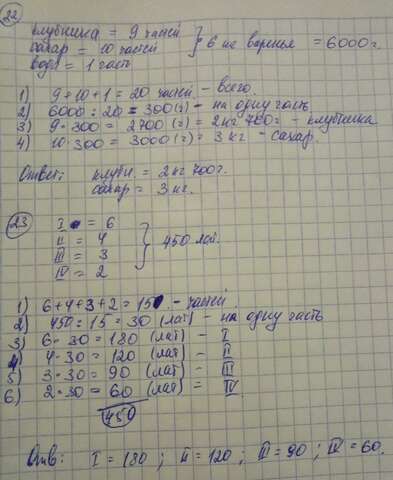 22
клубника = 9 частей
сахар = 10 частей } 6 кг варенье = 6000 г.
вода = 1 часть
1) 9 + 10 + 1 = 20 частей - всего.
2) 6000 : 20 = 300 (г) - на одну часть
3) 9 · 300 = 2700 (г) = 2 кг 700 г - клубника
4) 10 · 300 = 3000 (г) = 3 кг - сахар.
Ответ: клубн. = 2 кг 700 г.
сахар = 3 кг.
23
I = 6
II = 4
III = 3 } 450 лат.
IV = 2
1) 6 + 4 + 3 + 2 = 15 - частей
2) 450 : 15 = 30 (лат) - на одну часть
3) 6 · 30 = 180 (лат) - I
4) 4 · 30 = 120 (лат) - II
5) 3 · 30 = 90 (лат) - III
6) 2 · 30 = 60 (лат) = IV
450
Отв: I = 180 ; II = 120 ; III = 90 ; IV = 60.